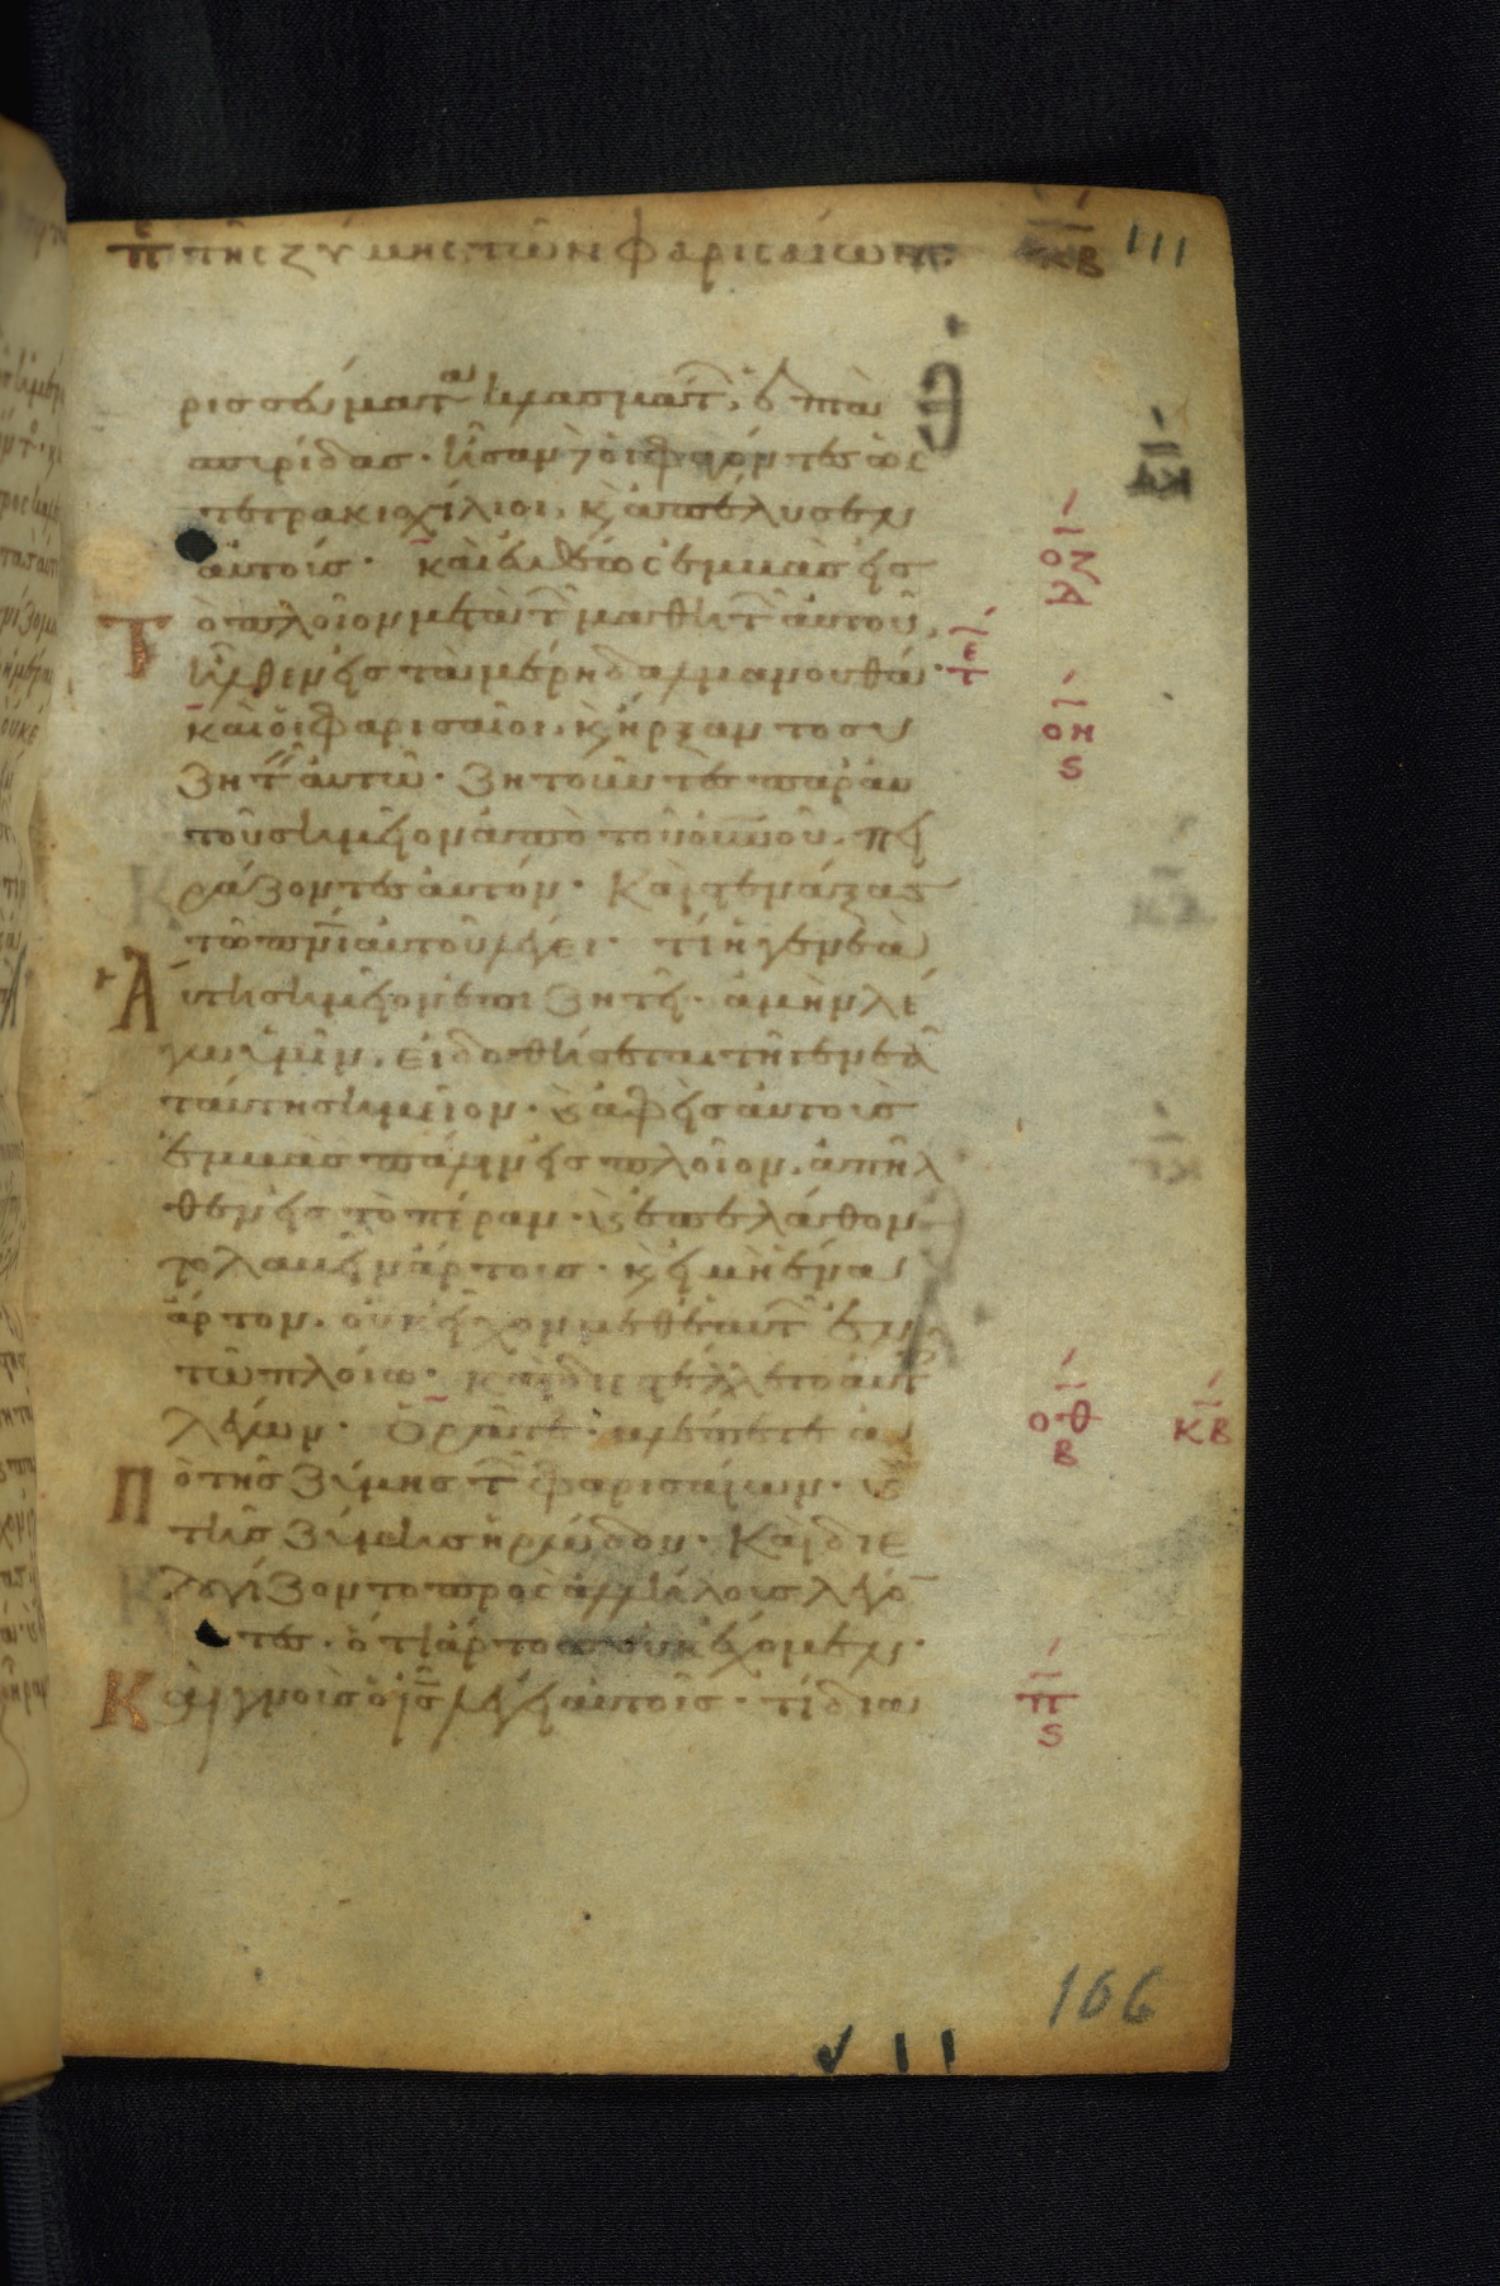 π τῆς ζύμης τῶν φαρισαίων κβ 111
ρισσεύματα κλασμάτ, ἑπτὰ
σπιρίδας. ἦσαν δὲ οἱ φαγόντες ὡς
τετρακισχίλιοι, κ ἀπέλυσεν
αὐτοίς. καὶ εὐθέως ἐμβὰς εἰς οζ
τ ὸ πλοῖον μετὰ τ μαθητ αὐτοῦ,
ἦλθεν εἰς τὰ μέρη δαλμανουθά.
καὶ οἱ φαρισαῖοι, κ ἤρξαντο συ οη ς
ζητ αὐτῶ. ζητοῦντες παρ' αυ
τοῦ σημεῖον ἀπὸ τοῦ οὐνοῦ. πει
ράζοντες αὐτόν. Καὶ στενάξας
τῶ πνι αὐτοῦ λέγει. τί ἡ γενεὰ
Α ὕτη σημεῖον ἐπιζητεῖ. ἀμὴν λέ
γω ὑμῖν. εἰ δοθήσεται τῆ γενεᾶ
ταύτη σημεῖον. κ ἀφεὶς αὐτοὺς
ἐμβὰς πάλιν εἰς πλοῖον. ἀπῆλ
θεν εἰς τὸ πέραν. κ ἐπελάθον
το λαβεῖν ἄρτους. κ εἰ μὴ ἕνα
ἄρτον. οὐκ εἶχον μεθ' ἑαυτ ἐν
τῶ πλοίω. καὶ διεστέλλετο αὐτ
λέγων. Ὁρᾶτε. βλέπετε ἀ οθ β κβ
Π ὸ τῆς ζύμης τ φαρισαίων. κ
τῆς ζύμης ἡρώδου. Καὶ διε
λογίζοντο πρὸς ἀλλήλους λέγο
τες. ὅτι ἄρτους οὐκ ἔχομεν.
Κ αὶ γνοὺς ὁ ις λέγει αὐτοῖς. τί δια π ς
166